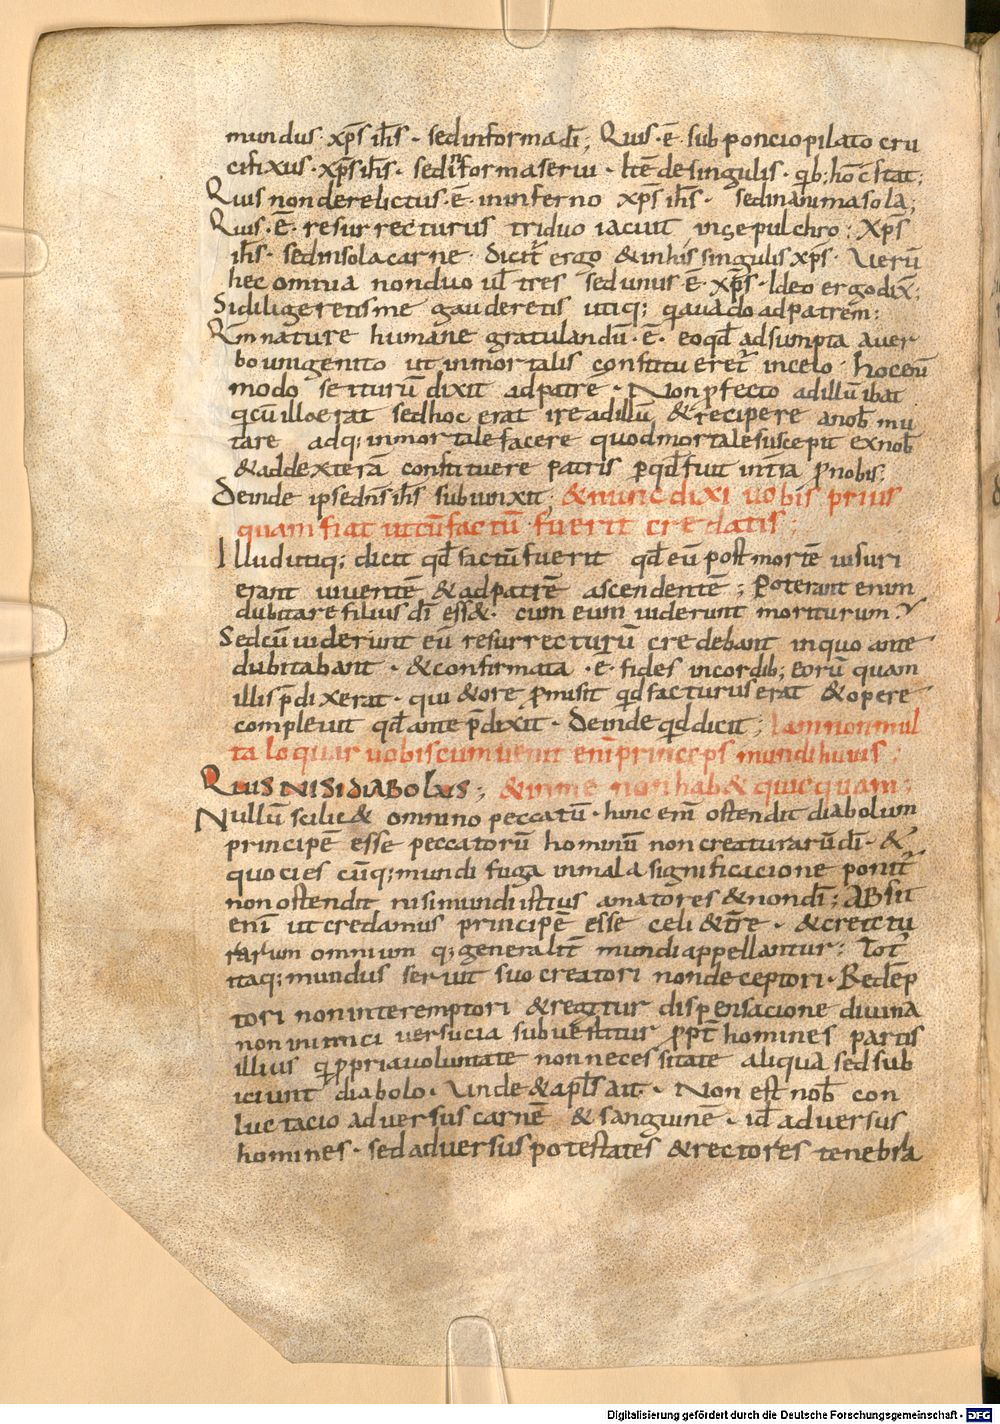 mundus · xp̄s ih̄s · sedinformadī; Quis · ē · sub poncio pilato cru
cifixus · xp̄s ih̄s · sed ī forma serui · Itē de singulis · qib; hoc stat;
Quis non derelictus · ē · in inferno xp̄s ih̄s · sed in anima sola;
Quis · ē · resurrecturus triduo iacuit in sepulchro; Xp̄s
ih̄s · sed insola carne · dicit̄ ergo & inhis singulis xp̄s · Uerū
hec omnia nonduo ul̄ tres sed unus ē xp̄s · Ideo ergo dix̄;
Si diligeretis me gauderetis utiq; q̄a uado ad patrem;
Qm̄ nature humane gratulandū · ē · eo qd̄ adsumpta a uer
bo unigenito ut inmortalis constitueret̄ in celo · hoc enī
modo se iturū dixit ad patrē · Non p̄fecto ad illū ibat
q cū illo erat sed hoc erat ire ad illū & recipere a nob̄ mu
tare adq; inmortale facere quod mortale suscepit ex nob̄
& ad dexterā constituere patris p̄ qd̄ fuit in t̄ra p̄ nobis.
Deinde ipse dn̄s ih̄s subiunxit; & nunc dixi uobis prius
quam fiat ut cū factū fuerit credatis;
Illud utiq; dicit qd̄ factū fuerit qd̄ eū post mortē uisuri
erant uiuentē & ad patrē ascendentē; Poterant enim
dubitare filius dī ess& · cum eum uiderunt moriturum ·
Sed cū uiderunt eū resurrecturū credebant in quo ante
dubitabant · & confirmata · ē · fides in cordib; eorū quam
illis p̄dixerat · qui & ore p̄misit qd̄ facturus erat & opere
compleuit qd̄ ante p̄dixit · Deinde qd̄ dicit; Iam non mul
ta loquar uobiscum uenit enī princeps mundi huius;
QUIS NISI DIABOLUS; & in me non hab& quicquam;
Nullū scilic& omnino peccatū · hinc enī ostendit diabolum
principē esse peccatorū hominū non creaturarū dī · &
quocies cūq; mundi fuga in mala significacione ponit̄
non ostendit nisi mundi istius amatores & non dī; ABsit
enī ut credamus principē esse celi & t̄re · & creatu
rarum omnium q; generalit̄ mundi appellantur; Tot̄
itaq; mundus seruit suo creatori non deceptori · Redēp
tori non interemptori & regitur dispensacione diuina
non inimici uersucia subuertitur p̄pt̄ homines partis
illius q̄ p̄pria uoluntate non necessitate aliqua sed sub
iciunt diabolo · Unde & apl̄s ait · Non est nob̄ con
luctacio aduersus carnē & sanguinē · id̄ aduersus
homines · sed aduersus potestates & rectores tenebra
Digitalisierung gefördert durch die Deutsche Forschungsgemeinschaft - DFG